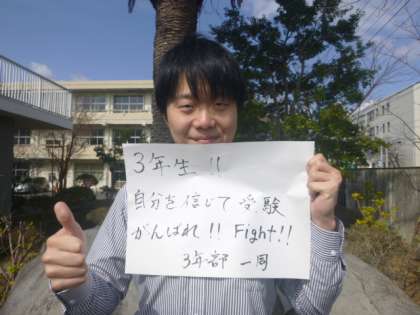 3年生!!
自分を信じて受験
がんばれ!! Fight!!
3年部 一同